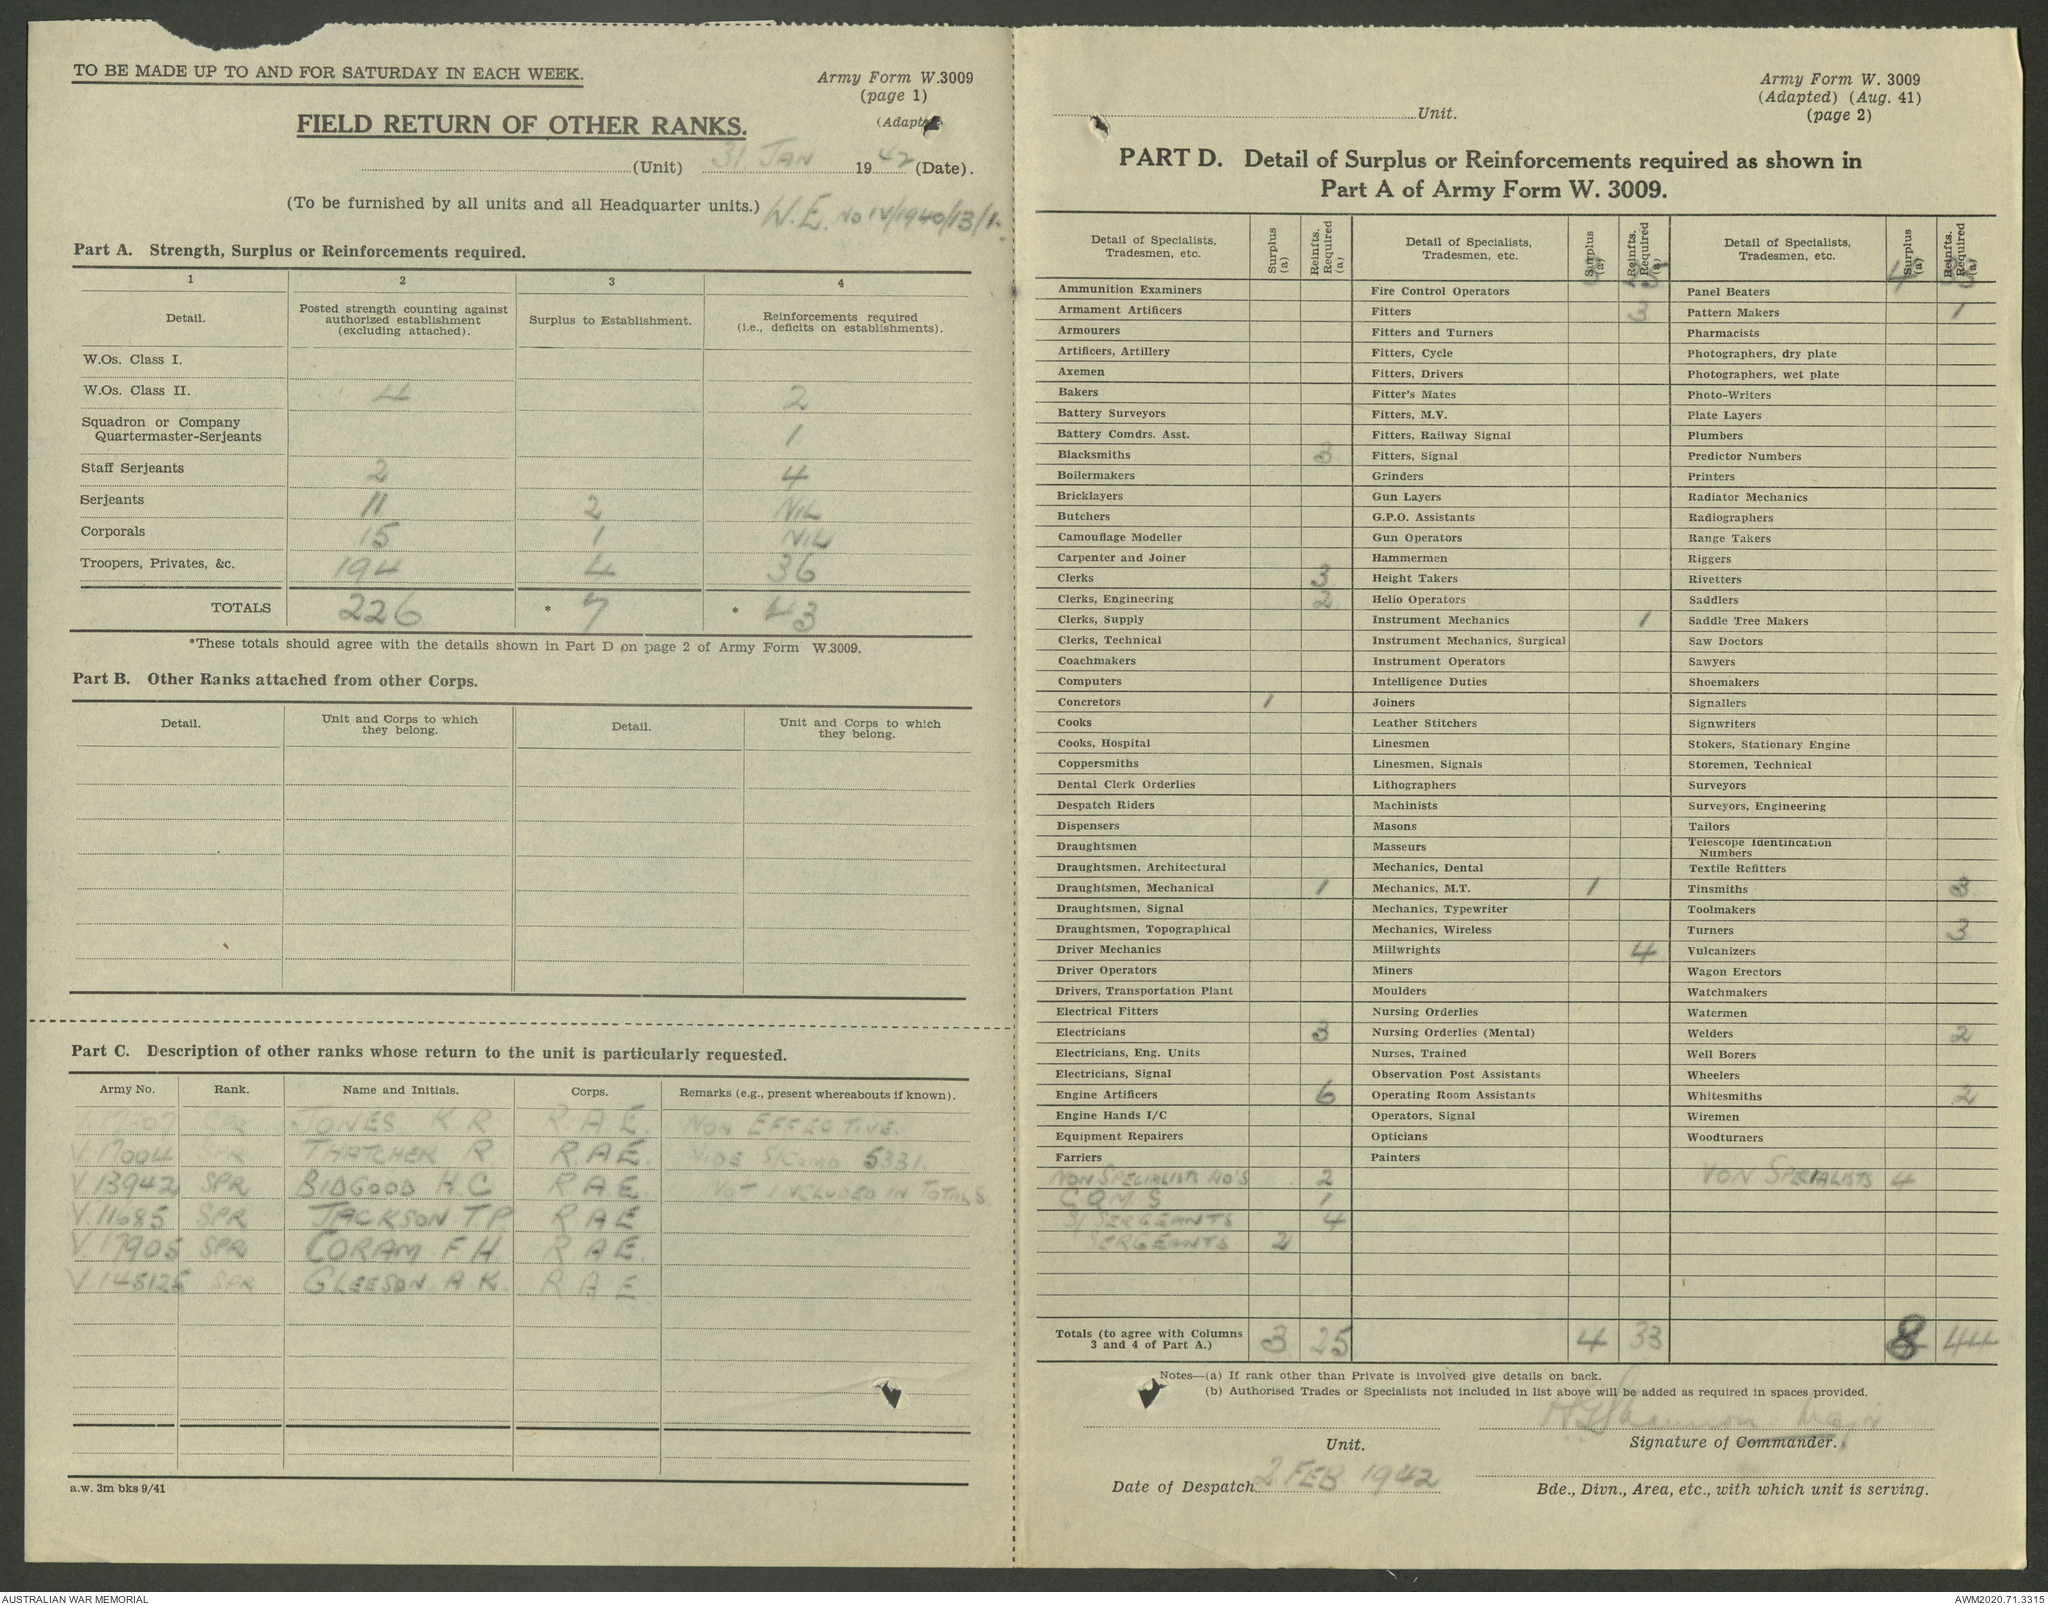 TO BE MADE UP TO AND FOR SATURDAY IN EACH WEEK.
Army Form W.3009
(page 1)
(Adapt
FIELD RETURN OF OTHER RANKS.
(Unit) 31 JAN 1942 (Date).
(To be furnished by all units and all Headquarter units.) W.E. No IV/1940/13/1.
Part A. Strength, Surplus or Reinforcements required.
1 2 3 4
Detail. Posted strength counting against authorized establishment (excluding attached). Surplus to Establishment. Reinforcements required (i.e., deficits on establishments).
W.Os. Class I.
W.Os. Class II. 4 2
Squadron or Company
Quartermaster-Serjeants 1
Staff Serjeants 2 4
Serjeants 11 2 NIL
Corporals 15 1 NIL
Troopers, Privates, &c. 194 4 36
TOTALS 226 * 7 * 43
*These totals should agree with the details shown in Part D on page 2 of Army Form W.3009.
Part B. Other Ranks attached from other Corps.
Detail. Unit and Corps to which they belong. Detail. Unit and Corps to which they belong.
Part C. Description of other ranks whose return to the unit is particularly requested.
Army No. Rank. Name and Initials. Corps. Remarks (e.g., present whereabouts if known).
SPR JONES K R R A E. NON EFFECTIVE.
V.17004 SPR THATCHER R. R A E. VIDE S/COMD 5331.
V13942 SPR BIDGOOD H C R A E. NOT INCLUDED IN TOTALS
V.11685 SPR JACKSON T P R A E
V.17905 SPR CORAM F H R A E.
V.145125 SPR GLEESON A K. R A E
a.w. 3m bks 9/41
Unit.
Army Form W. 3009
(Adapted) (Aug. 41)
(page 2)
PART D. Detail of Surplus or Reinforcements required as shown in
Part A of Army Form W. 3009.
Detail of Specialists, Tradesmen, etc. Surplus (a) Reinfts. Required (a) Detail of Specialists, Tradesmen, etc. Surplus (a) Reinfts. Required (a) Detail of Specialists, Tradesmen, etc. Surplus (a) Reinfts. Required (a)
Ammunition Examiners Fire Control Operators Panel Beaters
Armament Artificers Fitters 3 Pattern Makers 1
Armourers Fitters and Turners Pharmacists
Artificers, Artillery Fitters, Cycle Photographers, dry plate
Axemen Fitters, Drivers Photographers, wet plate
Bakers Fitter's Mates Photo-Writers
Battery Surveyors Fitters, M.V. Plate Layers
Battery Comdrs. Asst. Fitters, Railway Signal Plumbers
Blacksmiths 3 Fitters, Signal Predictor Numbers
Boilermakers Grinders Printers
Bricklayers Gun Layers Radiator Mechanics
Butchers G.P.O. Assistants Radiographers
Camouflage Modeller Gun Operators Range Takers
Carpenter and Joiner Hammermen Riggers
Clerks 3 Height Takers Rivetters
Clerks, Engineering 2 Helio Operators Saddlers
Clerks, Supply Instrument Mechanics 1 Saddle Tree Makers
Clerks, Technical Instrument Mechanics, Surgical Saw Doctors
Coachmakers Instrument Operators Sawyers
Computers Intelligence Duties Shoemakers
Concretors 1 Joiners Signallers
Cooks Leather Stitchers Signwriters
Cooks, Hospital Linesmen Stokers, Stationary Engine
Coppersmiths Linesmen, Signals Storemen, Technical
Dental Clerk Orderlies Lithographers Surveyors
Despatch Riders Machinists Surveyors, Engineering
Dispensers Masons Tailors
Draughtsmen Masseurs Telescope Identification Numbers
Draughtsmen, Architectural Mechanics, Dental Textile Refitters
Draughtsmen, Mechanical 1 Mechanics, M.T. 1 Tinsmiths 3
Draughtsmen, Signal Mechanics, Typewriter Toolmakers
Draughtsmen, Topographical Mechanics, Wireless Turners 3
Driver Mechanics Millwrights 4 Vulcanizers
Driver Operators Miners Wagon Erectors
Drivers, Transportation Plant Moulders Watchmakers
Electrical Fitters Nursing Orderlies Watermen
Electricians 3 Nursing Orderlies (Mental) Welders 2
Electricians, Eng. Units Nurses, Trained Well Borers
Electricians, Signal Observation Post Assistants Wheelers
Engine Artificers 6 Operating Room Assistants Whitesmiths 2
Engine Hands I/C Operators, Signal Wiremen
Equipment Repairers Opticians Woodturners
Farriers Painters
NON SPECIALISTS 2 NON SPECIALISTS 4
C Q M S 1
S/ SERGEANTS 4
SERGEANTS 2
Totals (to agree with Columns 3 and 4 of Part A.) 3 25 4 33 8 44
Notes—(a) If rank other than Private is involved give details on back.
(b) Authorised Trades or Specialists not included in list above will be added as required in spaces provided.
Major
Unit. Signature of Commander.
Date of Despatch 2 FEB 1942
Bde., Divn., Area, etc., with which unit is serving.
AUSTRALIAN WAR MEMORIAL
AWM2020.71.3315